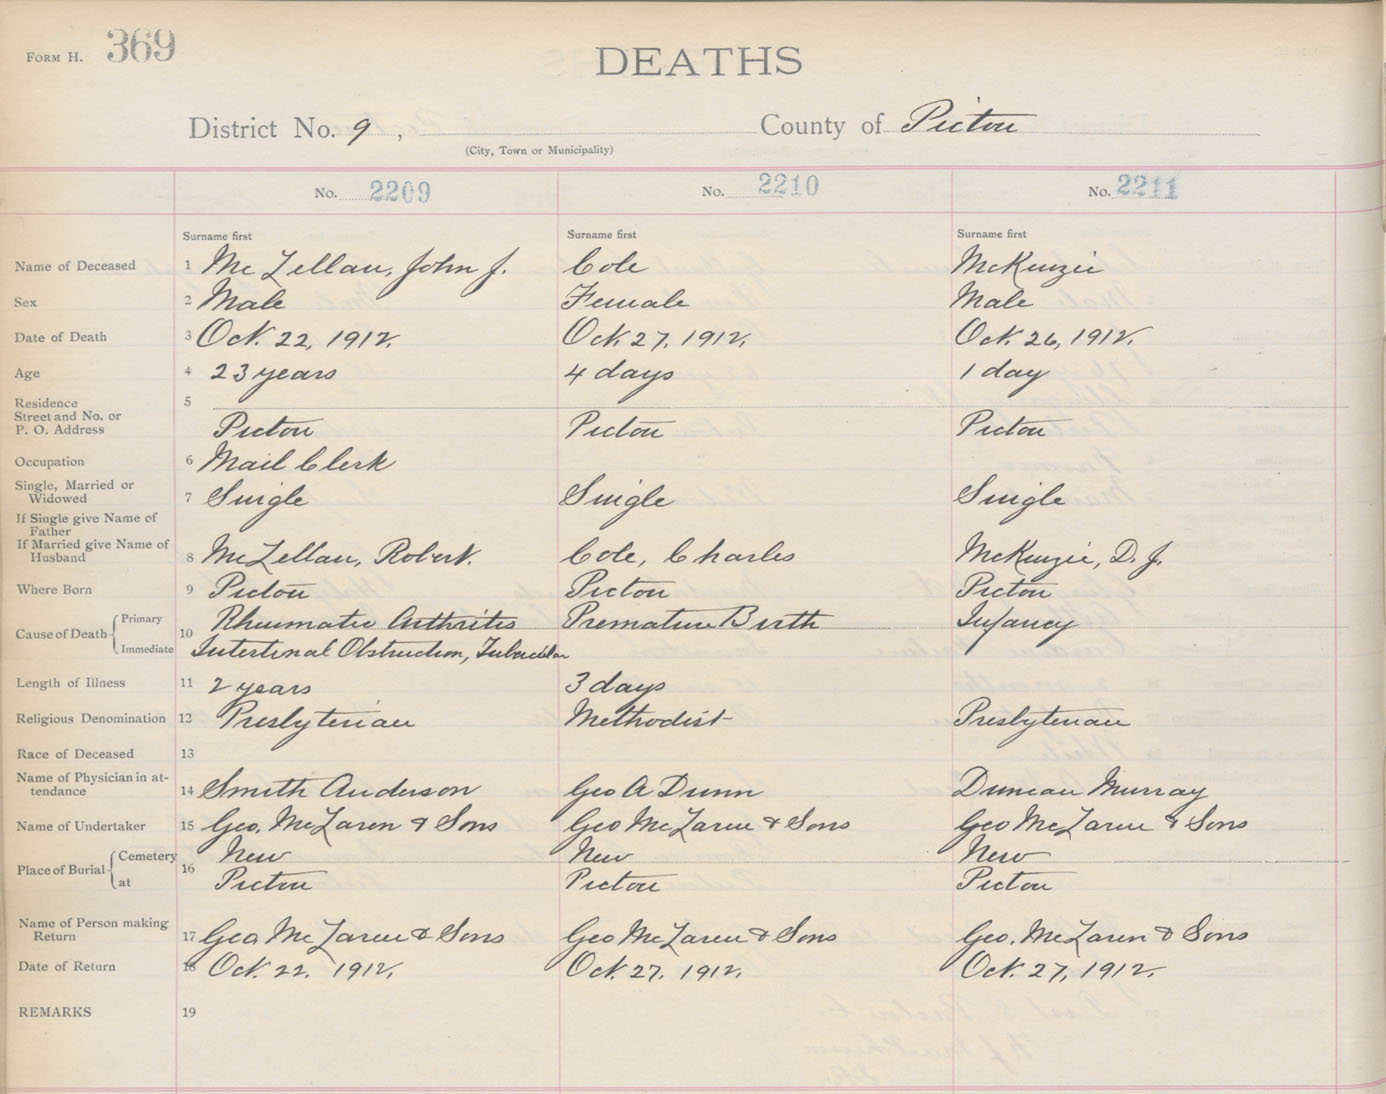 FORM H. 369
DEATHS
District No. 9, County of Pictou
(City, Town or Municipality)
No. 2209 No. 2210 No. 2211
Surname first Surname first Surname first
Name of Deceased 1 McLellan, John J. Cole McKenzie
Sex 2 Male Female Male
Date of Death 3 Oct. 22, 1912. Oct. 27, 1912. Oct. 26, 1912.
Age 4 23 years 4 days 1 day
Residence 5
Street and No. or
P. O. Address Pictou Pictou Pictou
Occupation 6 Mail Clerk
Single, Married or
Widowed 7 Single Single Single
If Single give Name of
Father
If Married give Name of
Husband 8 McLellan, Robert. Cole, Charles McKenzie, D. J.
Where Born 9 Pictou Pictou Pictou
Cause of Death Primary 10 Rheumatic Arthritis Premature Birth Infancy
Immediate Intertinal Obstruction,
Length of Illness 11 2 years 3 days
Religious Denomination 12 Presbyterian Methodist Presbyterian
Race of Deceased 13
Name of Physician in at-
tendance 14 Smith Anderson Geo A Dunn Duncan Murray
Name of Undertaker 15 Geo. McLaren & Sons Geo McLaren & Sons Geo McLaren & Sons
Place of Burial Cemetery 16 New New New
at Pictou Pictou Pictou
Name of Person making
Return 17 Geo McLaren & Sons Geo McLaren & Sons Geo. McLaren & Sons
Date of Return 18 Oct. 22. 1912. Oct. 27. 1912. Oct. 27, 1912.
REMARKS 19